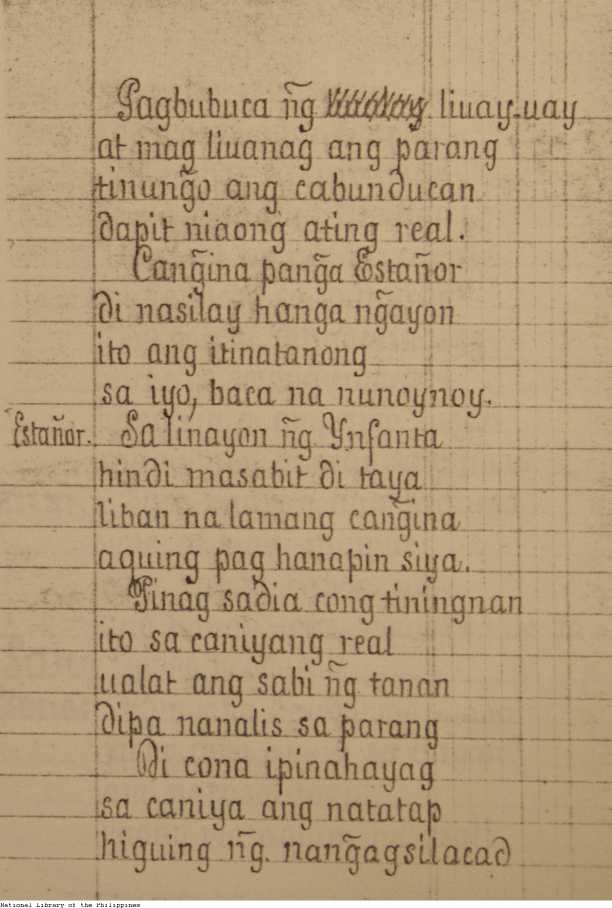 Pagbubuca n͠g liuay-uay
at mag liuanag ang parang
tinung̃o ang cabunducan
dapit niaong ating real.
Cang̃ina pang̃a Estañor
di nasilay hanga ng̃ayon
ito ang itinatanong
sa iyo, baca na nunoynoy.
Estañor. Sa linayon n͠g Ynfanta
hindi masabit di taya
liban na lamang cang̃ina
aquing pag hanapin siya.
Pinag sadia cong tiningnan
ito sa caniyang real
ualat ang sabi n͠g tanan
dipa nanalis sa parang
Di cona ipinahayag
sa caniya ang natatap
higuing n͠g. nang̃agsilacad
National Library of the Philippines